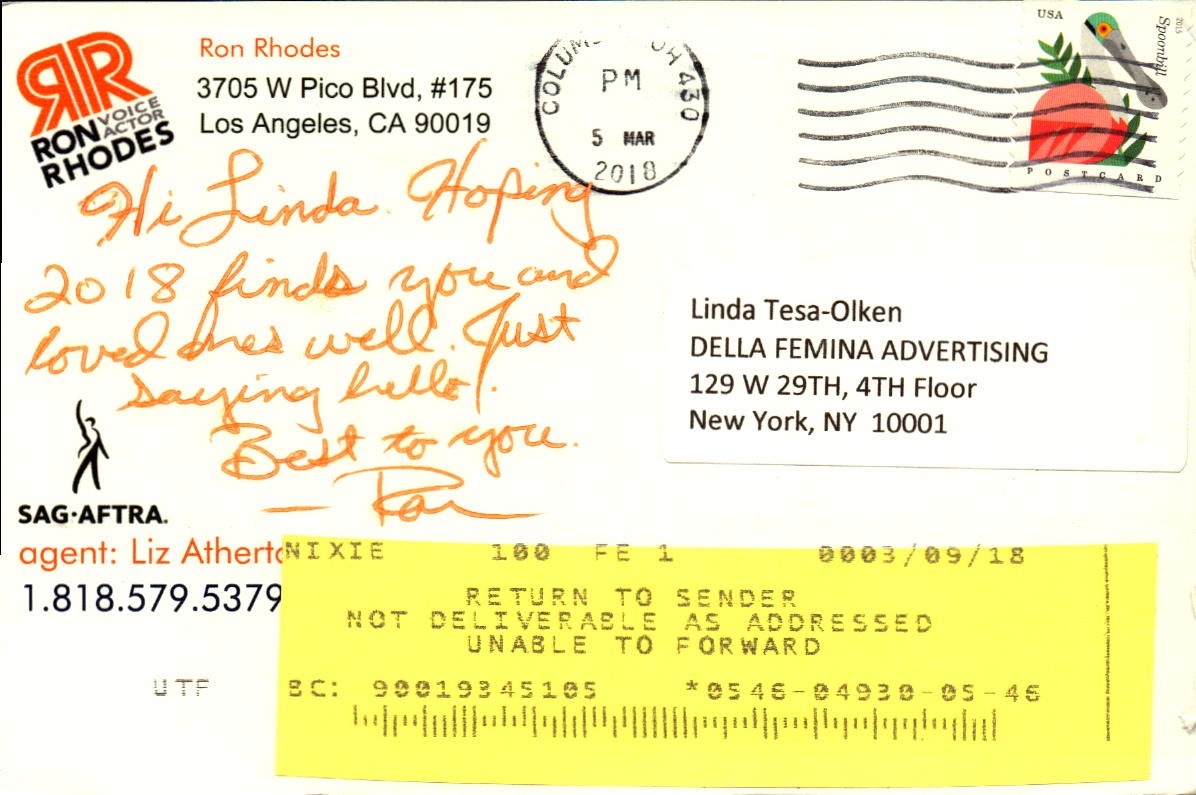 RON VOICE
ACTOR
RHODES
Ron Rhodes
3705 W Pico Blvd, #175
Los Angeles, CA 90019
COLUM OH 430
PM
5 MAR
2018
USA
2015
Spoonbill
POSTCARD
Hi Linda. Hoping
2018 finds you and
loved ones well. Just
saying hello!
Best to you.
— Ron
Linda Tesa-Olken
DELLA FEMINA ADVERTISING
129 W 29TH, 4TH Floor
New York, NY 10001
SAG·AFTRA.
agent: Liz Atherto
1.818.579.5379
NIXIE 100 FE 1 0003/09/18
RETURN TO SENDER
NOT DELIVERABLE AS ADDRESSED
UNABLE TO FORWARD
UTF BC: 90019345105 *0546-04930-05-46